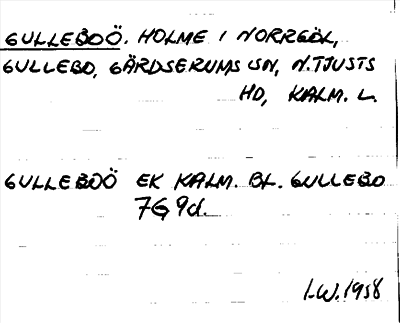 GULLEBOÖ. HOLME I NORRGÖL,
GULLEBO, GÄRDSERUMS SN, N.TJUSTS
HD, KALM. L.
GULLEBOÖ EK KALM. BL. GULLEBO
7G 9d.
I.W. 1958